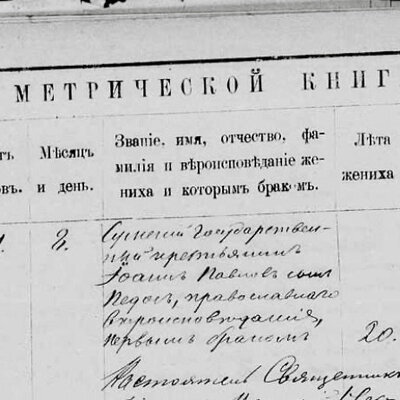 МЕТРИЧЕСКОЙ КНИГ
Мѣсяцъ
и день.
Званіе, имя, отчество, фа-
милія и вѣроисповѣданіе же-
ниха и которымъ бракомъ.
Лѣта
жениха
2.
Государствен-
ный крестьянинъ
Іоаннъ Павловъ сынъ
православнаго
вѣроисповѣданія,
первымъ бракомъ
20.
Настоятель Священникъ